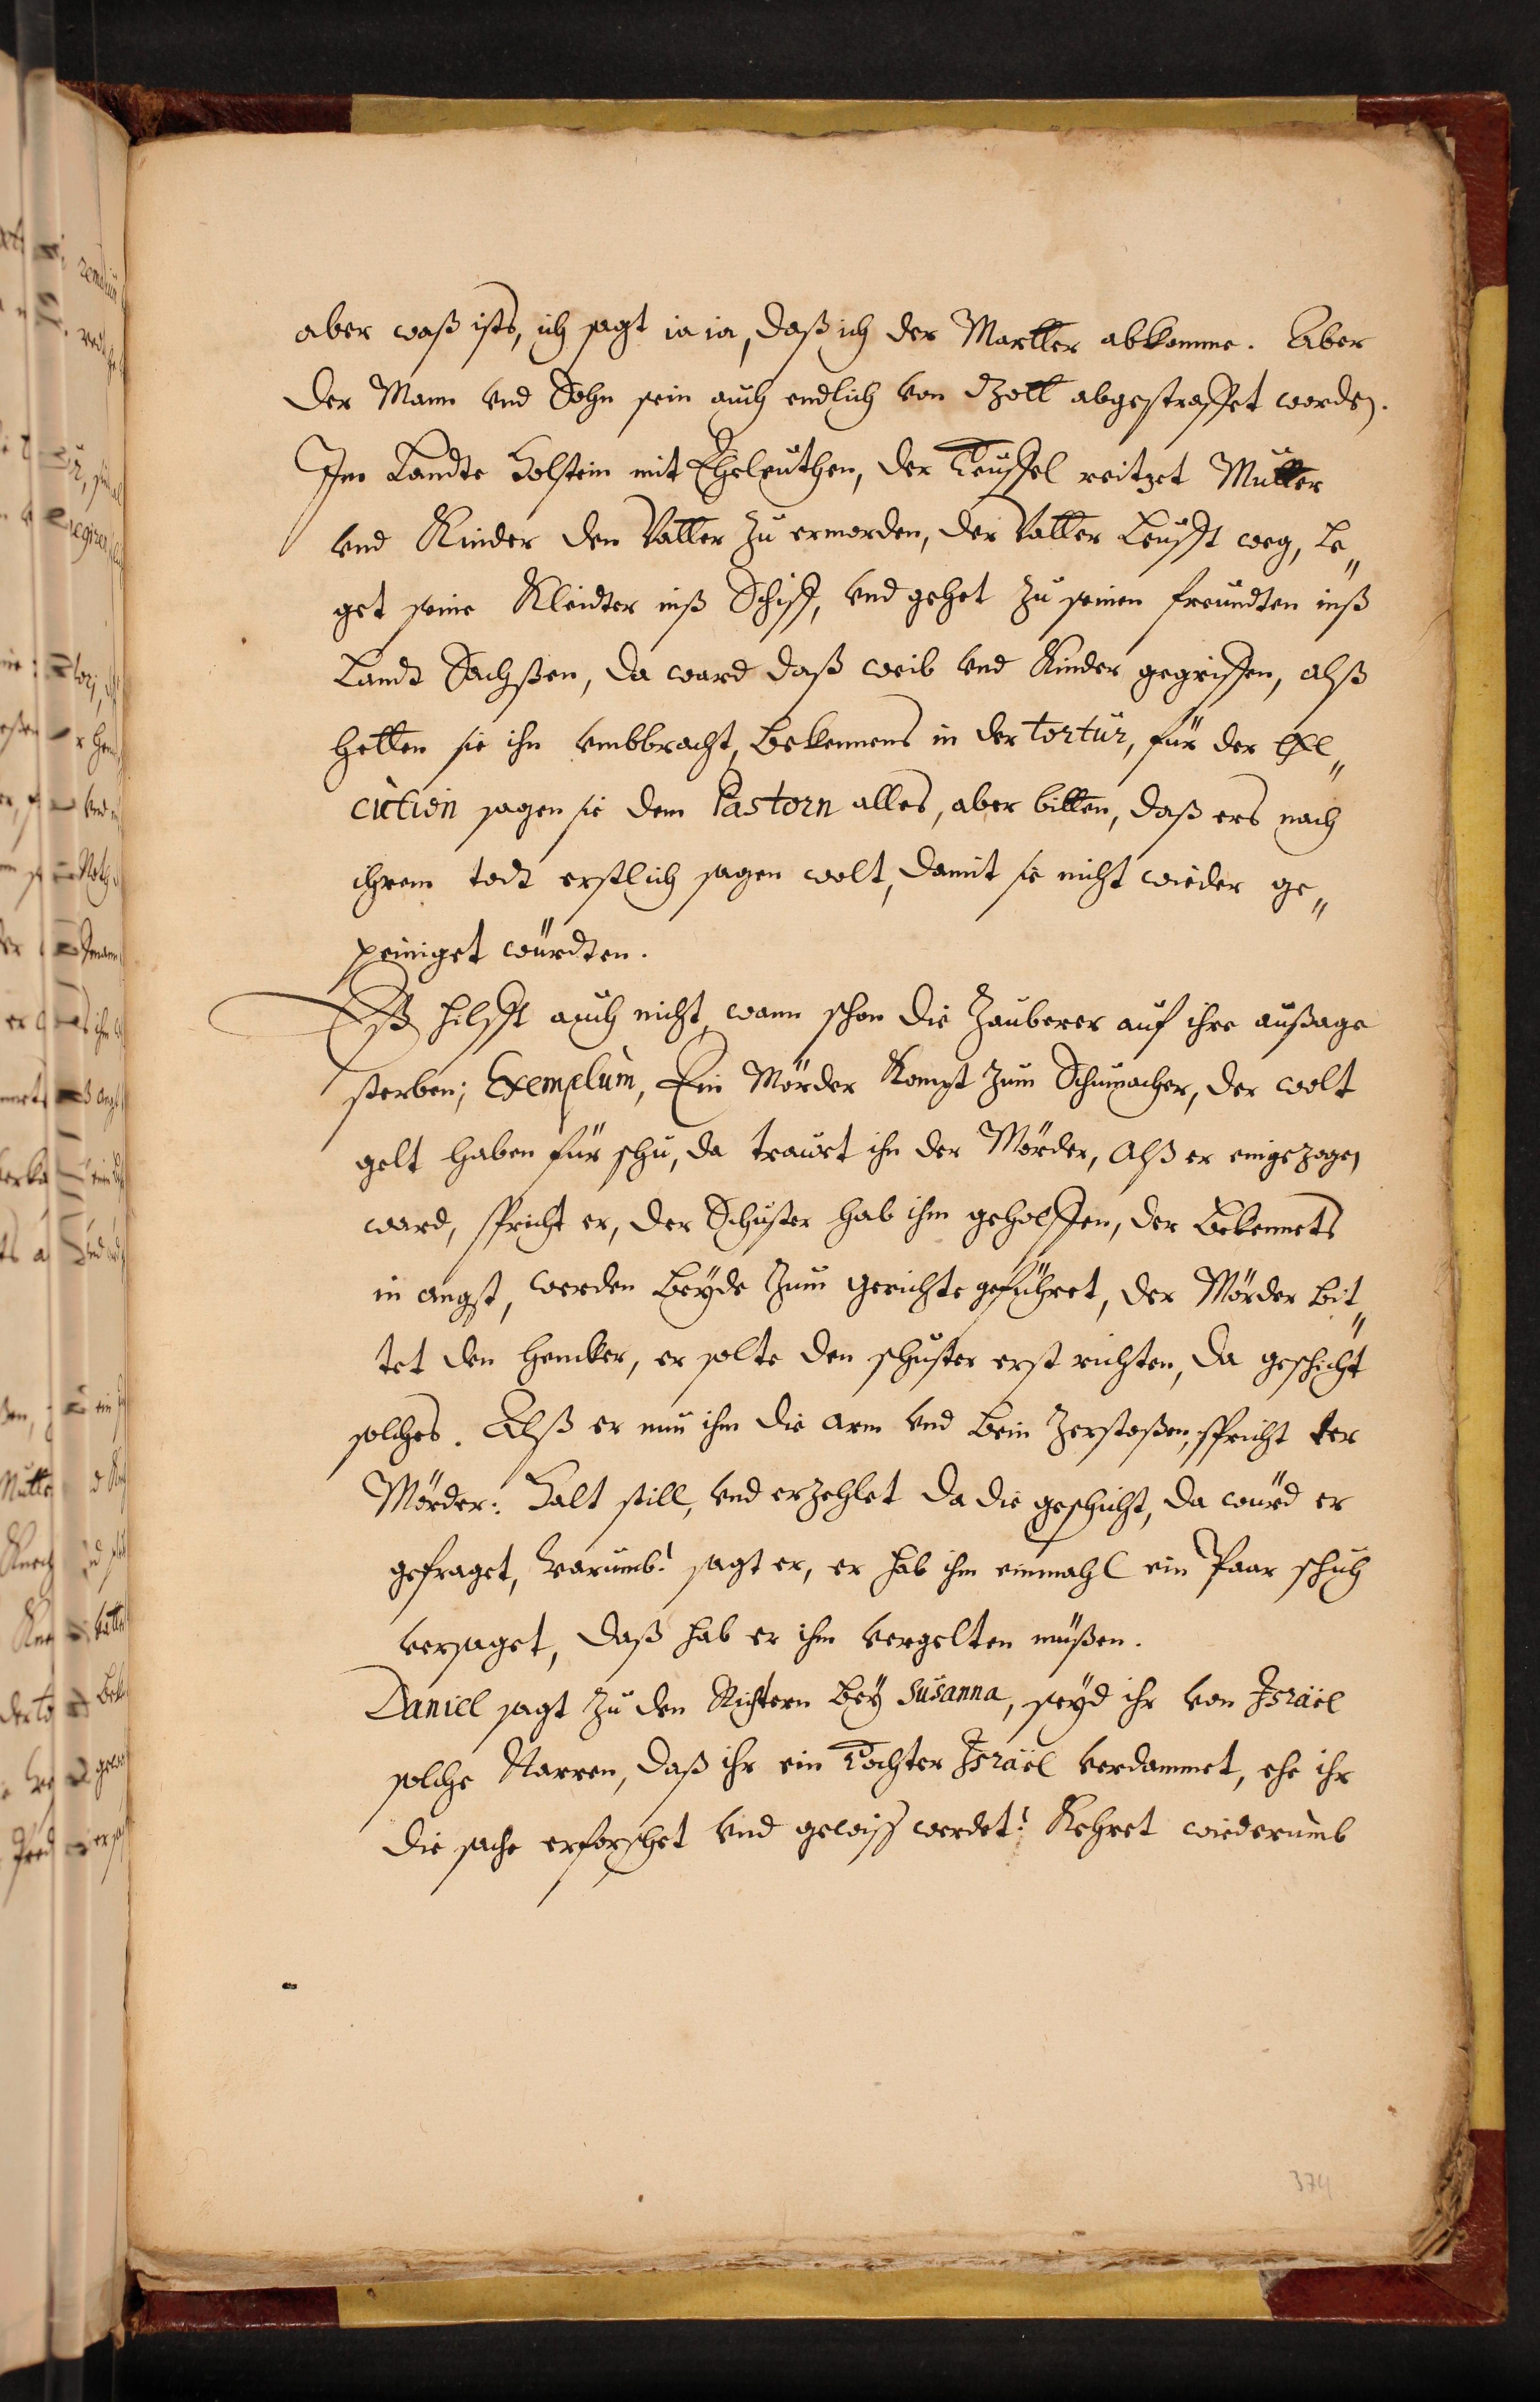 aber waß ists, ich sagt ia ia, daß ich der Martter abkomme. Aber
der Mann vnd Sohn sein auch endlich von abgestraffet worden.
Im Landte Holstein mit Eheleuthen, der Teuffel reitzet Mutter
vnd Kinder den Vatter zu ermorden, der Vatter leufft weg, le„
get seine Kleidter inß Schiff, vnd gehet zu seinen freundten inß
Landt Sachßen, da ward daß weib vnd Kinder gegriffen, alß
hetten sie ihn vmbbracht, bekennens in der tortur, für der Exe„
cution sagen sie dem Pastorn alles, aber bitten, daß ers nach
ihrem todt erstlich sagen wolt, damit sie nicht wieder ge„
peiniget würdten.
Eß hilfft auch nicht, wann schon die Zauberer auf ihre außage
sterben; Exemplum, Ein Mörder Kompt zum Schumacher, der wolt
gelt haben für schu, da trauet ihn der Mörder, Alß er eingezogen
ward, spricht er, der Schuster hab ihm geholffen, der bekennets
in angst, werden beyde zum gerichte geführet, der Mörder bit„
tet den hencker, er solte den schuster erst richten, da geschicht
solches. Alß er nun ihm die arm vnd bein zerstoßen, spricht der
Mörder: Halt still, vnd erzehlet da die geschicht, da würd er
gefraget, warumb? sagt er, er hab ihm einmahl ein Paar schuh
versaget, daß hab er ihm vergelten müßen.
Daniel sagt zu den Richtern bey Susanna, seyd ihr von Israël
solche Narren, daß ihr ein Tochter Israël verdammet, ehe ihr
die sache erforschet vnd gewiss werdet? Kehret wiederumb
374